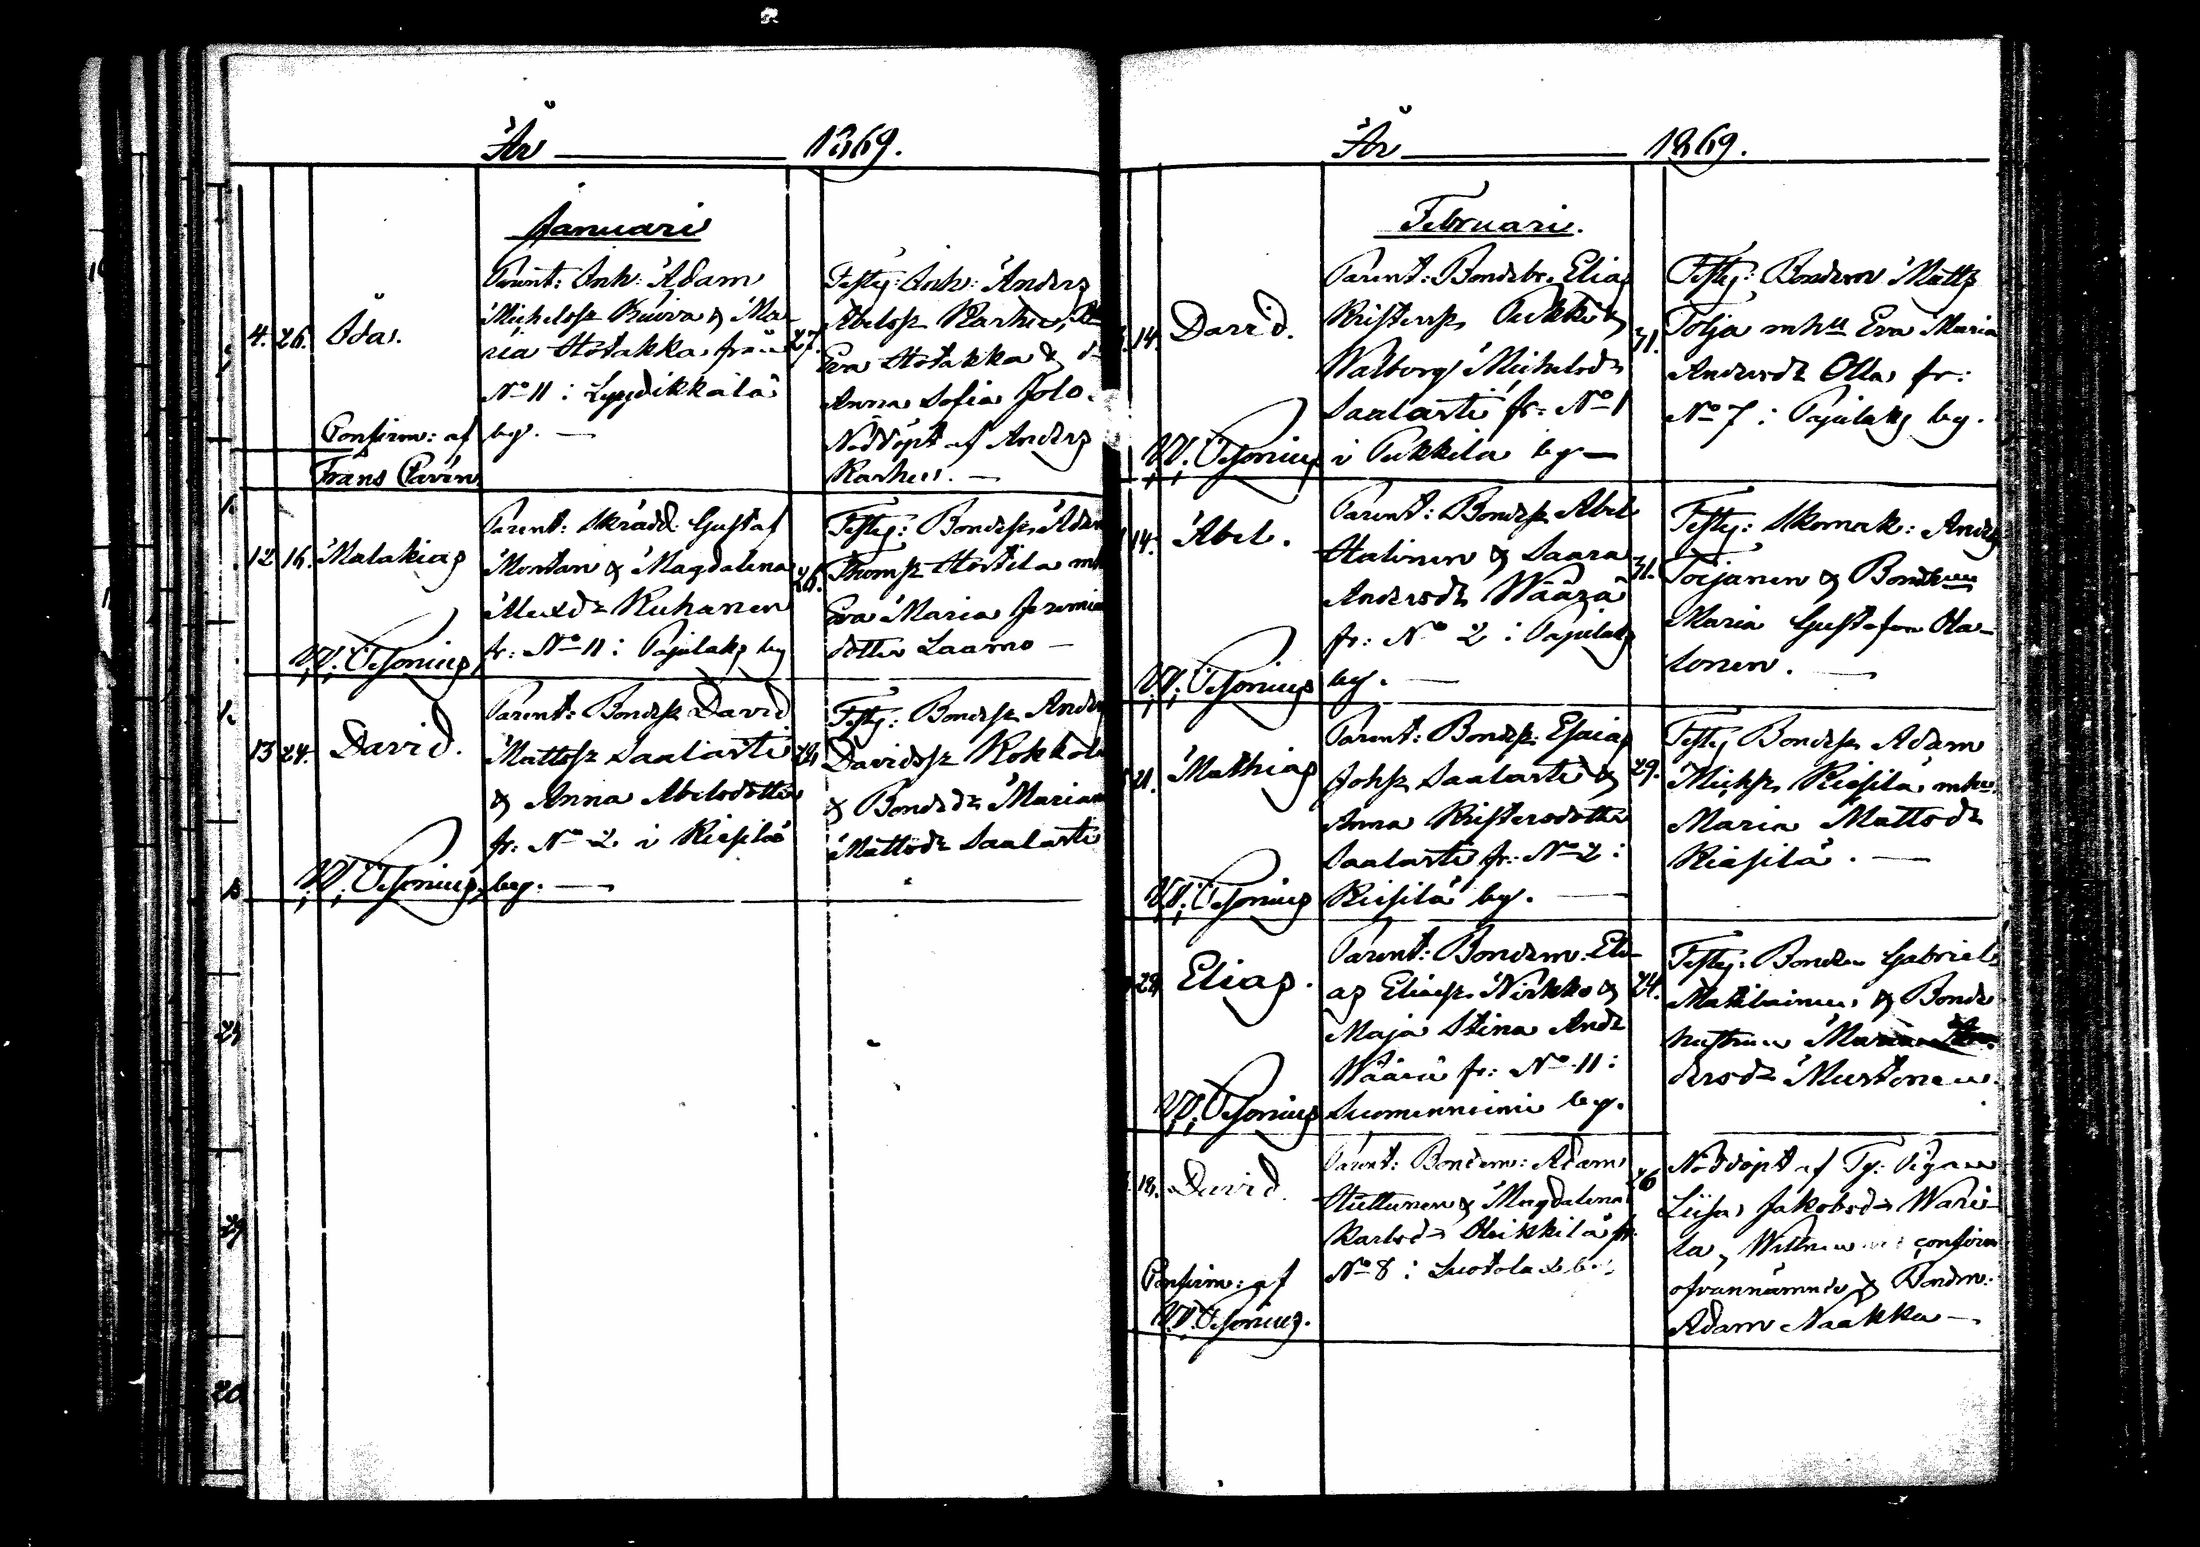 År 1869.
Januari
4. 26. Ida.
Confirm: af
Frans Pavén
Parent: Inh: Adam
Michelss Kuivra & Ma-
ria Hotakka från
No 11 i Lyydikkälä
by. —
27.
Testes: Inh: Anders
Abelss Karhu,
Eva Hotakka &
Anna Sofia Jolo.
Nöddöpt af Anders
Karhu. —
12 16. Malakias
W. Pesonius
Parent: Skrädd: Gustaf
Montan & Magdalena
Alexdr Kuhanen
fr: No 11 i Pajulaks by
26.
Testes: Bondess Adam
Thomss Hostila mh
Eva Maria Jeremias
dotter Laamo —
13 24. David.
W. Pesonius
Parent: Bondess David
Mattss Saalasti
& Anna Abelsdotter
fr: No 2 i Riesilä
by. —
Testes: Bondess Anders
Davidss Kokkola
& Bondedr Maria
Mattsdr Saalasti
År 1869.
Februari.
14. David.
W. Pesonius
Parent: Bondebr. Elias
Kristerss Pukkila &
Walborg Michelsdr
Saalasti fr: No 1
i Pukkila by —
31.
Testes: Bonden Matts
Tolja mhu Eva Maria
Andersdr Olla fr:
No 7 i Pajulaks by.
14. Abel.
W. Pesonius
Parent: Bondess Abel
Halinen & Saara
Andersdr Wäärä
fr: No 2 i Pajulaks
by. —
31.
Testes: Skomak: Anders
Toijanen & Bondhun
Maria Gustafva Ha-
lonen. —
21. Mathias
W. Pesonius
Parent: Bondess Esaias
Johss Saalasti &
Anna Kristersdotter
Saalasti fr: No 2 i
Riesilä by. —
29.
Testes Bondess Adam
Michss Riesilä mhu
Maria Mattsdr
Riesilä. —
Elias.
W. Pesonius
Parent: Bondem. Eli-
as Eliass Nirkko &
Maja Stina Andr
Wäärä fr: No 11 i
Suomenniemi by.
24.
Testes: Bonden Gabriel
Matilainen & Bonde
hustrun Maria An-
dersdr Mustonen.
18. David.
Confirm: af
W. Pesonius.
Parent: Bondem: Adam
Huttunen & Magdalena
Karlsdr Heikkilä fr:
No 8 i Luotolaks by
26
Nöddöpt af Ty: Pigan
Liisa Jakobsdr Wari-
la, Wittnen vid confirm
ofvannämnde & Bondm:
Adam Naakka —